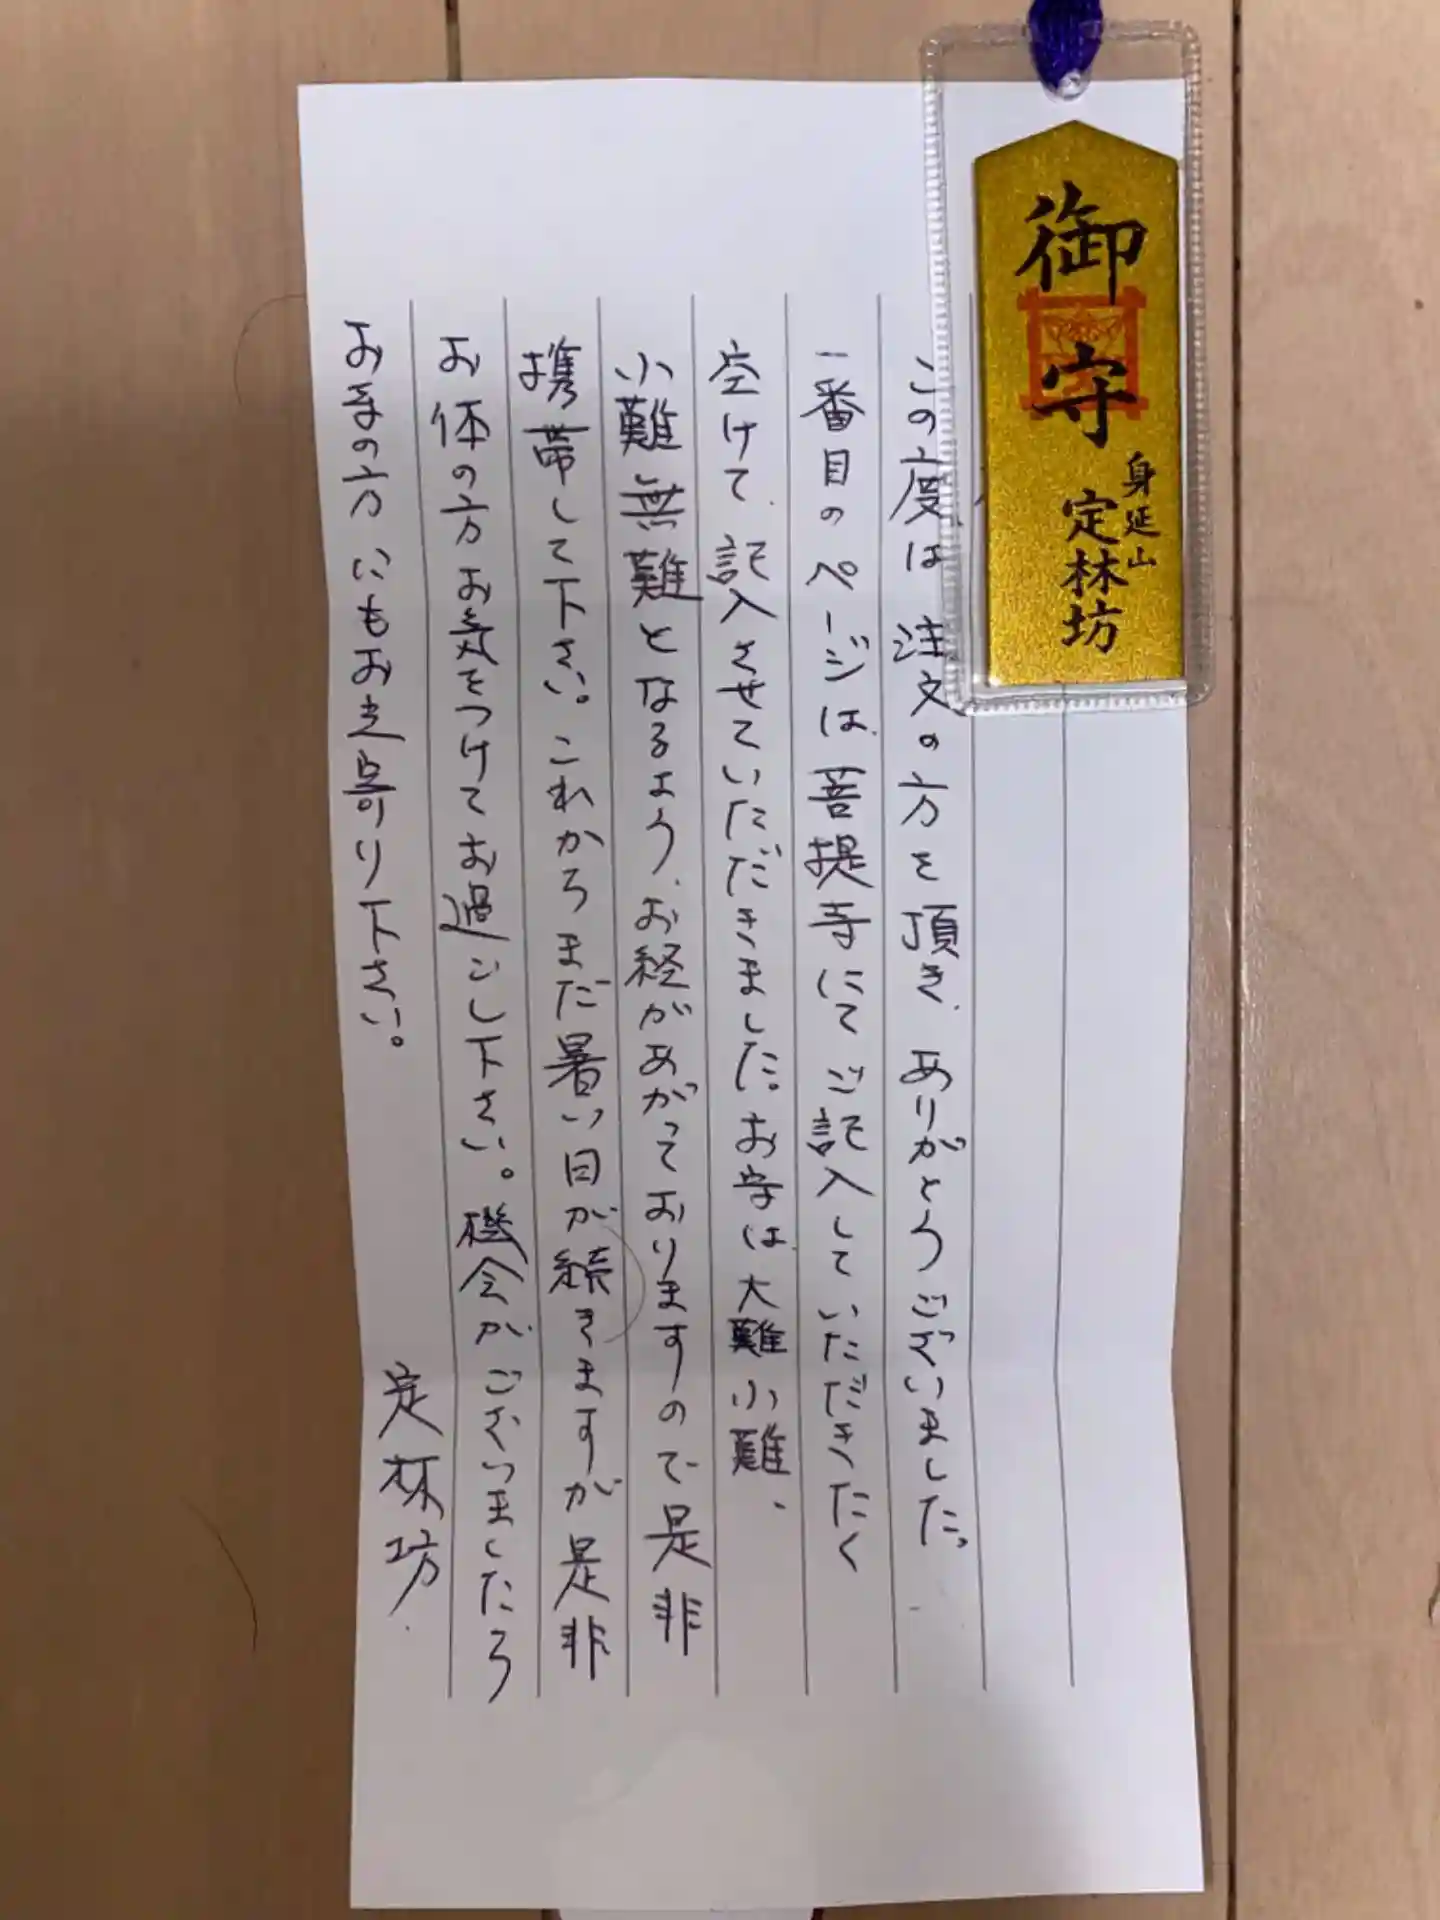 御守
身延山
定林坊
この度は注文の方を頂き、ありがとうございました。
一番目のページは、菩提寺にてご記入していただきたく
空けて、記入させていただきました。お守は、大難小難、
小難無難となるよう、お経があがっておりますので是非
携帯して下さい。これからまだ暑い日が続きますが是非
お体の方お気をつけてお過ごし下さい。機会がございましたら
お寺の方にもお立寄り下さい。
定林坊